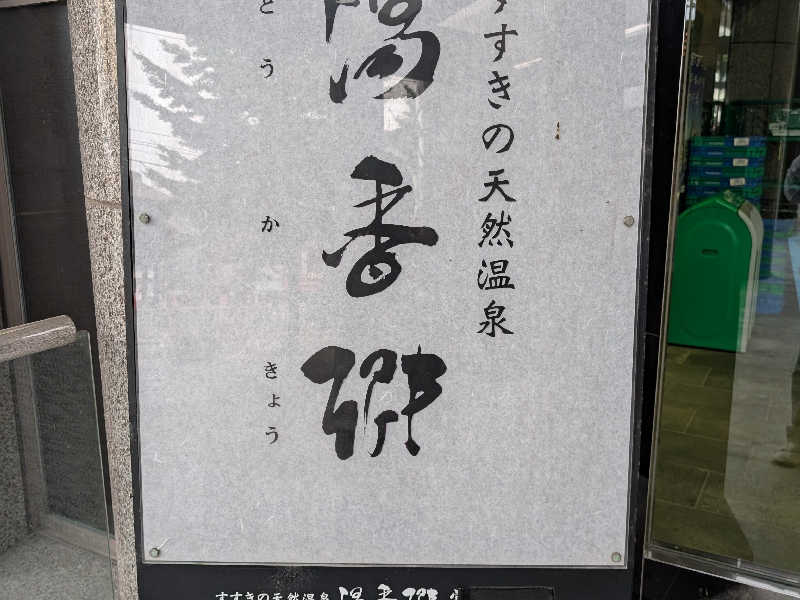 すすきの天然温泉
湯香郷
とうかきょう
すすきの天然温泉 湯香郷